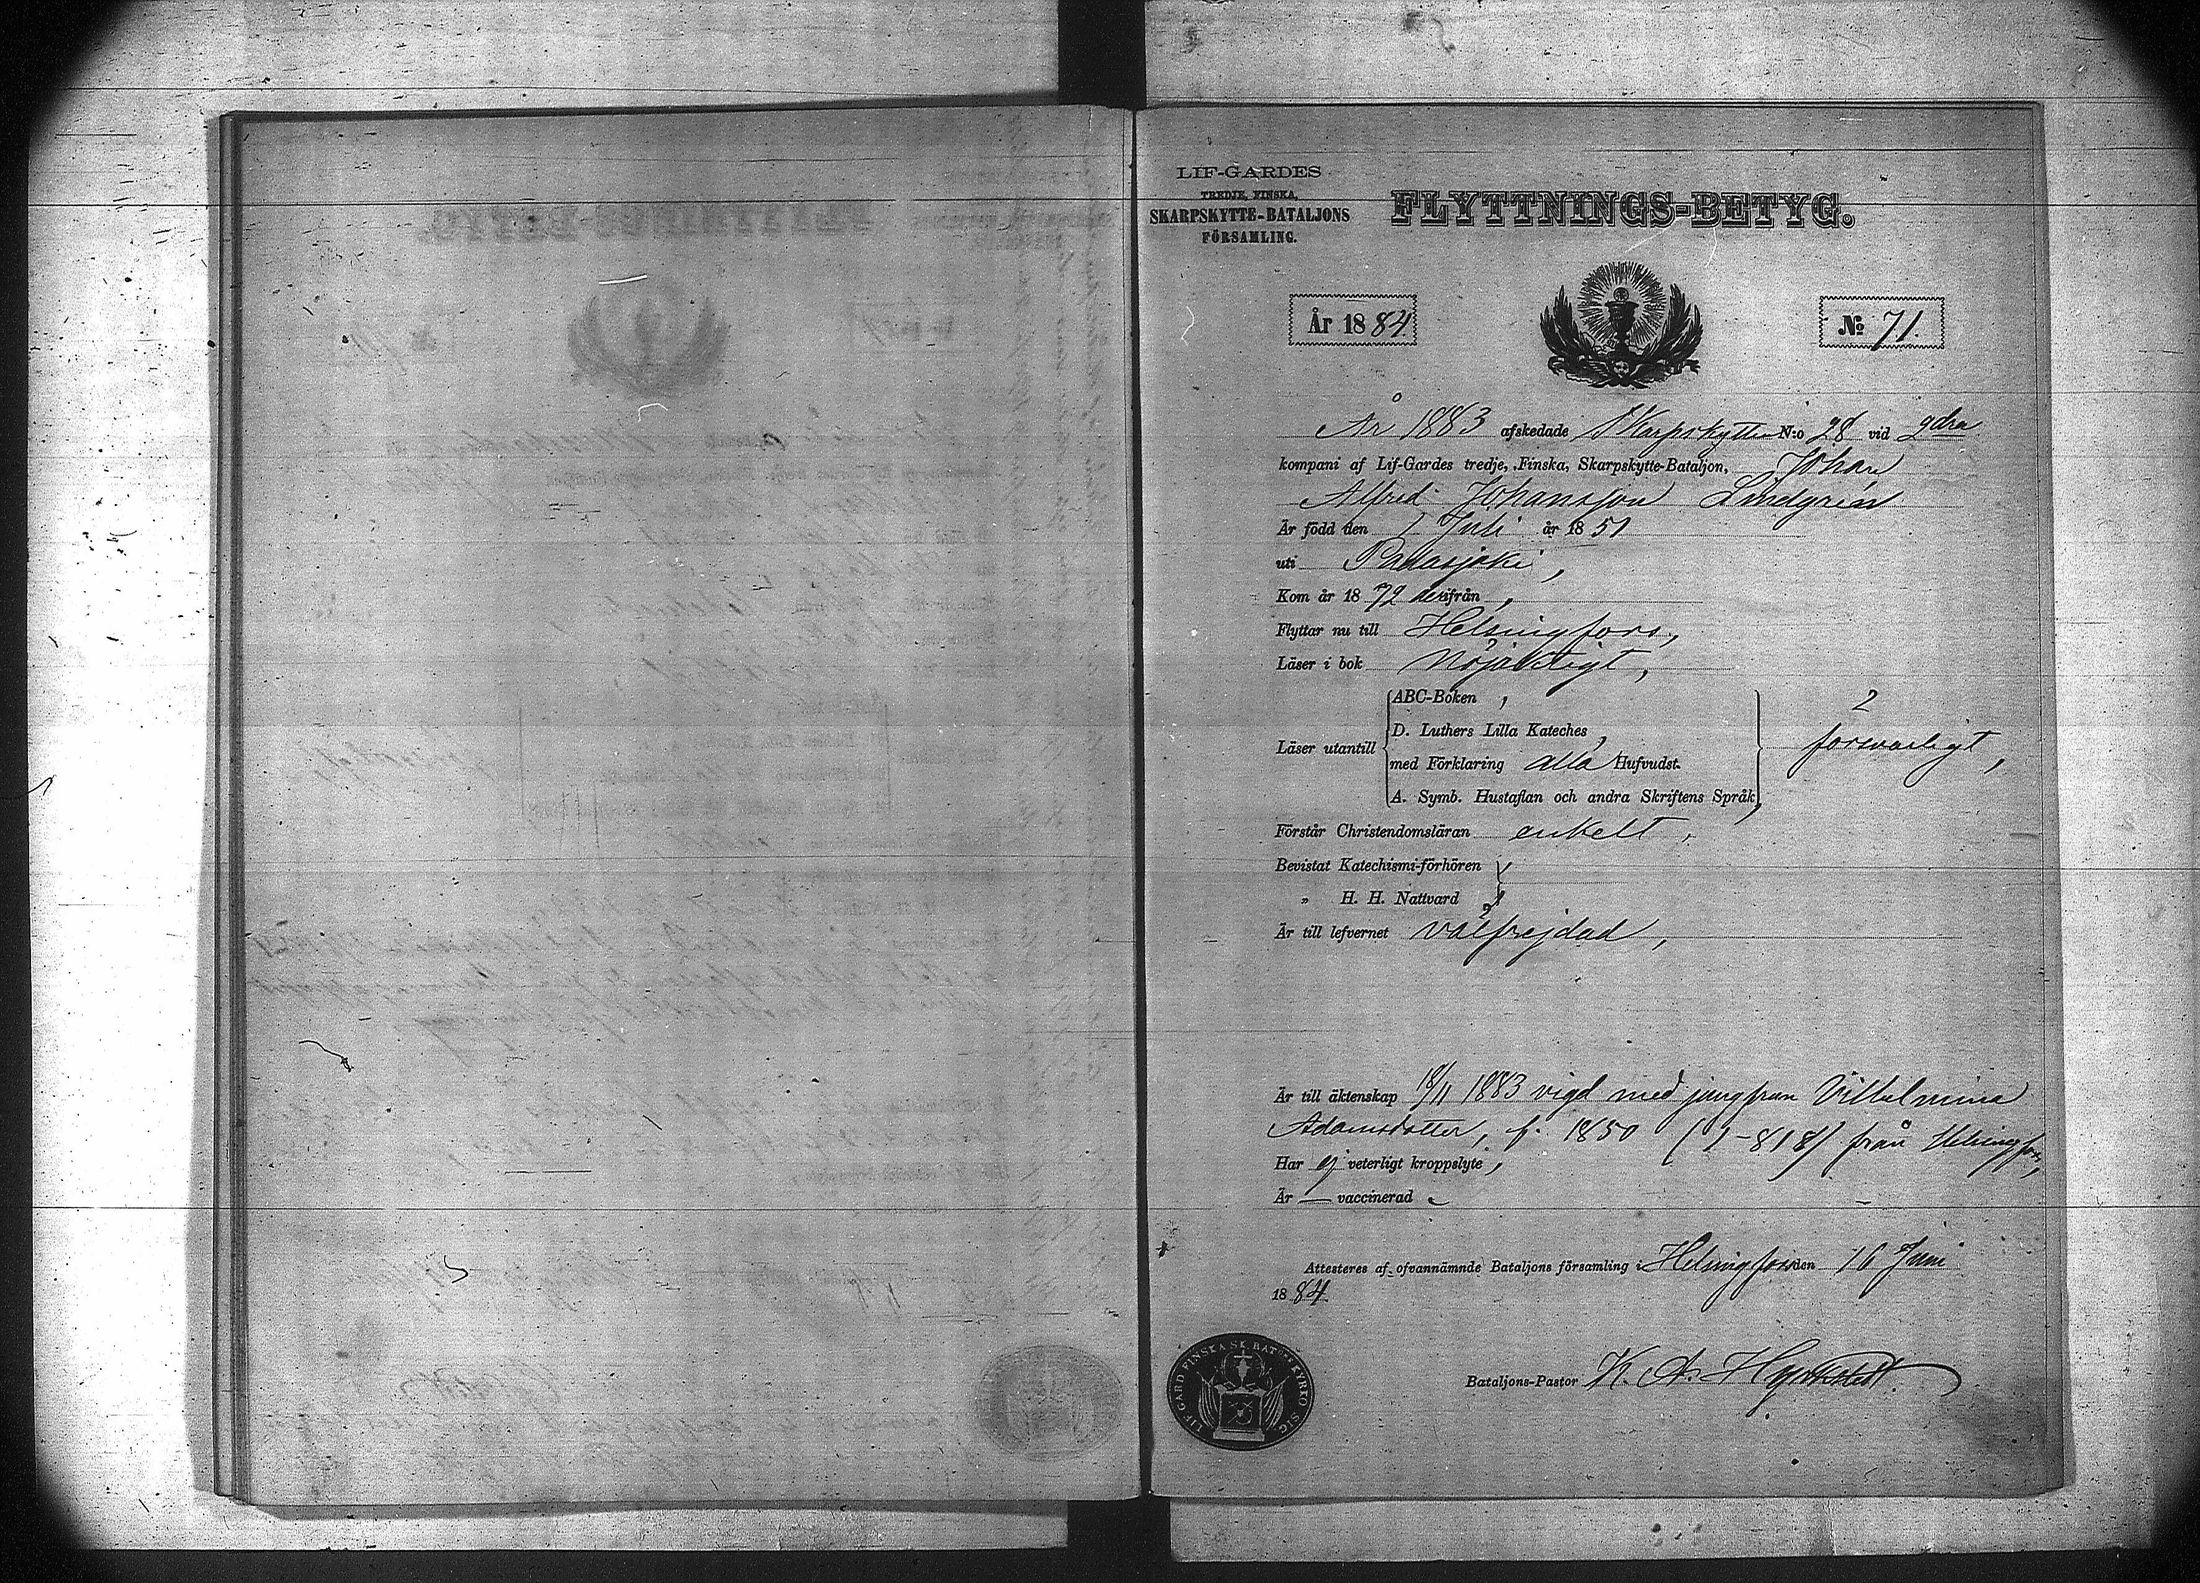 LIF-GARDES
TREDJE, FINSKA,
SKARPSKYTTE-BATALJONS
FÖRSAMLING.
FLYTTNINGS-BETYG.
År 1884
№ 71.
År 1883 afskedade Skarpskytten N:o 28 vid 2dra
kompani af Lif-Gardes tredje, Finska, Skarpskytte-Bataljon, Johan
Alfred Johansson Lindgrén
Är född den 1 Juli år 1851
uti Padasjoki,
Kom år 1872 derifrån,
Flyttar nu till Helsingfors,
Läser i bok nöjaktigt,
Läser utantill
ABC-Boken,
D. Luthers Lilla Kateches,
med Förklaring alla Hufvudst.
A. Symb. Hustaflan och andra Skriftens Språk,
försvarligt,
Förstår Christendomsläran enkelt,
Bevistat Katechismi-förhören
„ H. H. Nattvard
Är till lefvernet välfrejdad,
Är till äktenskap 18/11 1883 vigd med jungfrun Vilhelmina
Adamsdotter, f. 1850 (1-818) från Helsingfors,
Har ej veterligt kroppslyte,
Är — vaccinerad
Attesteres af ofvannämnde Bataljons församling i Helsingfors den 16 Juni
1884
Bataljons-Pastor K. A. Hyrkstedt.
LIF-GARD FINSKA SK. BAT KYRKO SIG.